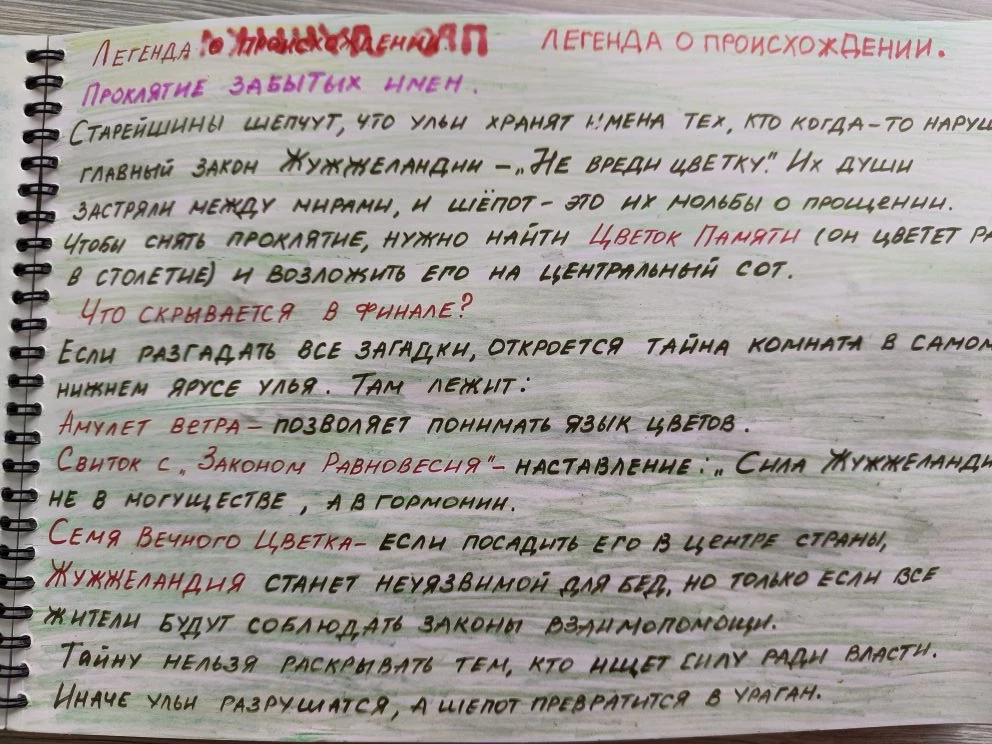 Легенда о происхождении. Легенда о происхождении.
Проклятие забытых имен.
Старейшины шепчут, что ульи хранят имена тех, кто когда-то наруш
главный закон Жужжеландии – „Не вреди цветку". Их души
застряли между мирами, и шёпот – это их мольбы о прощении.
Чтобы снять проклятие, нужно найти Цветок Памяти (он цветет ра
в столетие) и возложить его на центральный сот.
Что скрывается в финале?
Если разгадать все загадки, откроется тайна комната в самом
нижнем ярусе улья. Там лежит:
Амулет ветра – позволяет понимать язык цветов.
Свиток с „Законом Равновесия" – наставление: „Сила Жужжеланди
не в могуществе, а в гормонии.
Семя Вечного Цветка – если посадить его в центре страны,
Жужжеландия станет неуязвимой для бед, но только если все
жители будут соблюдать законы взаимопомощи.
Тайну нельзя раскрывать тем, кто ищет силу ради власти.
Иначе ульи разрушатся, а шепот превратится в ураган.